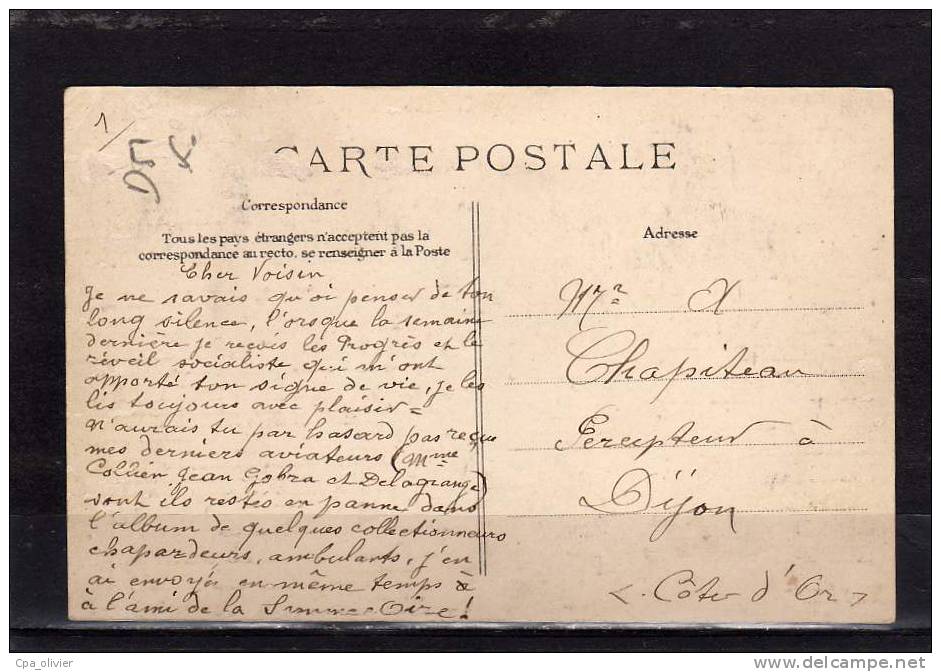 1/
95
X.
CARTE POSTALE
Correspondance
Tous les pays étrangers n'acceptent pas la
correspondance au recto, se renseigner à la Poste
Adresse
Cher Voisin
Je ne savais qu'oi penser de ton
long silence, l'orsque la semaine
dernière je reçois les Progrès et le
réveil socialiste qui m'ont
apporté ton signe de vie, je les
lis toujours avec plaisir =
N'aurais tu par hasard pas reçue
mes derniers aviateurs (Mme
Jean Gobra et Delagrange)
sont ils restés en panne dans
l'album de quelques collectionneurs
chapardeurs, ambulants, j'en
ai envoyés en même temps à
à l'ami de la Oise!
Mr X
Chapiteau
Percepteur à
Dijon
(Côte d'Or)
Cpa_olivier
http://www.delcampe.net